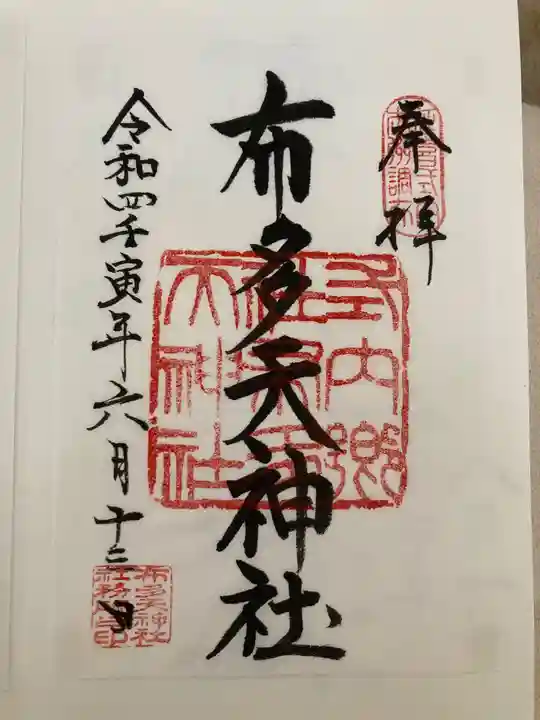 奉拝
布多天神社
令和四壬寅年六月十三日
式内郷社布多天神社
布多天神社社務所之印